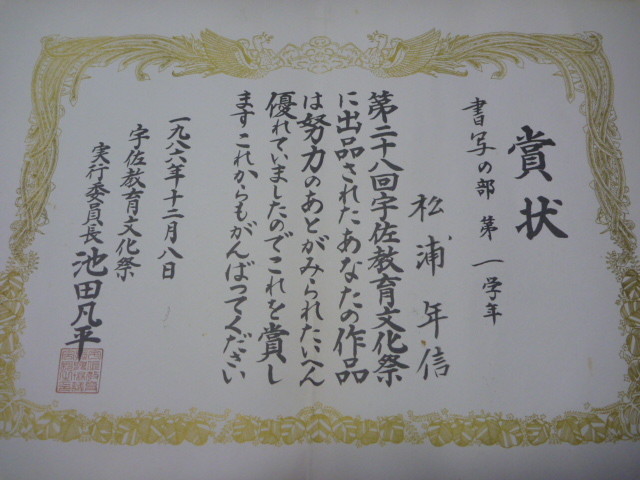 賞状
書写の部 第一学年
松浦年信
第二十八回宇佐教育文化祭
に出品されたあなたの作品
は努力のあとがみられたいへん
優れていましたのでこれを賞し
ますこれからもがんばってください
一九八六年十二月八日
宇佐教育文化祭
実行委員長 池田凡平